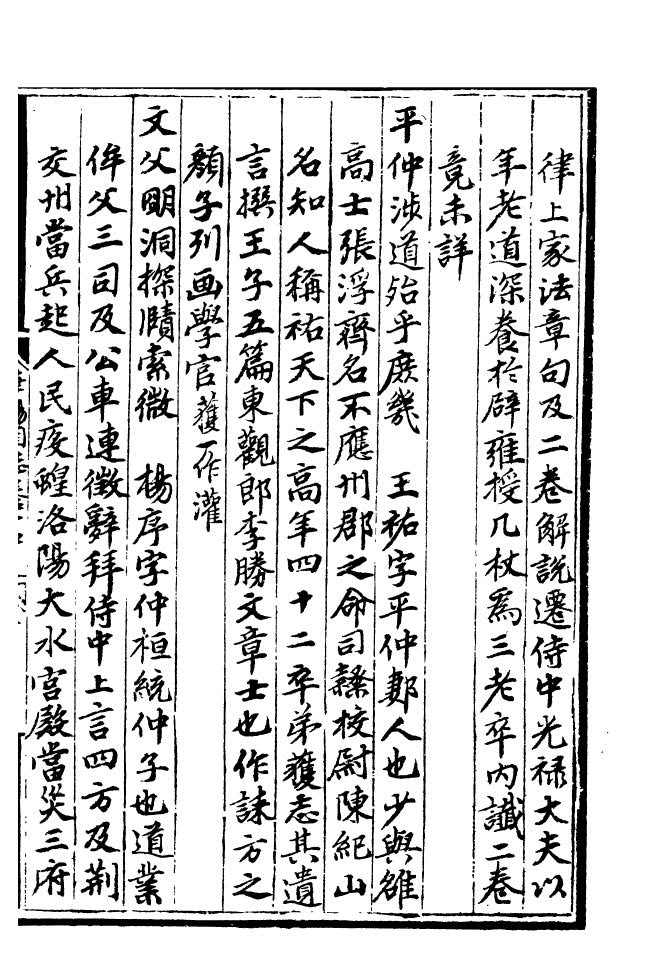 律上家法章句及二卷解說遷侍中光祿大夫以
年老道深養於辟雍授几杖為三老卒內讖二卷
竟未詳
平仲涉道殆乎庶幾　王祐字平仲郪人也少與雒
高士張浮齊名不應州郡之命司隸校尉陳紀山
名知人稱祐天下之高年四十二卒弟獲志其遺
言撰王子五篇東觀郎李勝文章士也作誄方之
顏子列画學官獲一作灌
文父明洞探賾索微　楊序字仲桓統仲子也道業
侔父三司及公車連徵辭拜侍中上言四方及荆
交州當兵起人民疫蝗洛陽大水宮殿當災三府